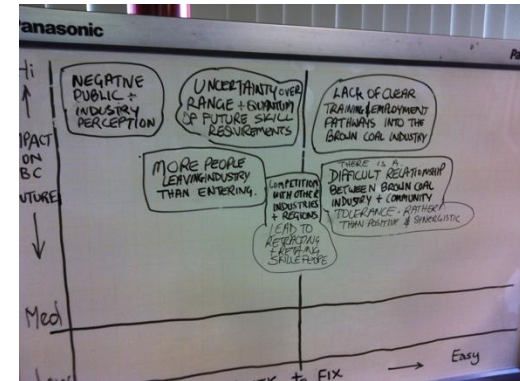 Panasonic
Hi
IMPACT
ON
BC
FUTURE
Med
NEGATIVE
PUBLIC +
INDUSTRY
PERCEPTION
UNCERTAINTY OVER
RANGE + QUANTUM
OF FUTURE SKILL
REQUIREMENTS
LACK OF CLEAR
TRAINING & EMPLOYMENT
PATHWAYS INTO THE
BROWN COAL INDUSTRY
MORE PEOPLE
LEAVING INDUSTRY
THAN ENTERING.
COMPETITION
WITH OTHER
INDUSTRIES
+ REGIONS
LEAD TO
RETRACTING
+ RETAINING
SKILLED PEOPLE
THERE IS A
DIFFICULT RELATIONSHIP
BETWEEN BROWN COAL
INDUSTRY + COMMUNITY
TOLERANCE - RATHER
THAN POSITIVE & SYNERGISTIC
to FIX
Easy